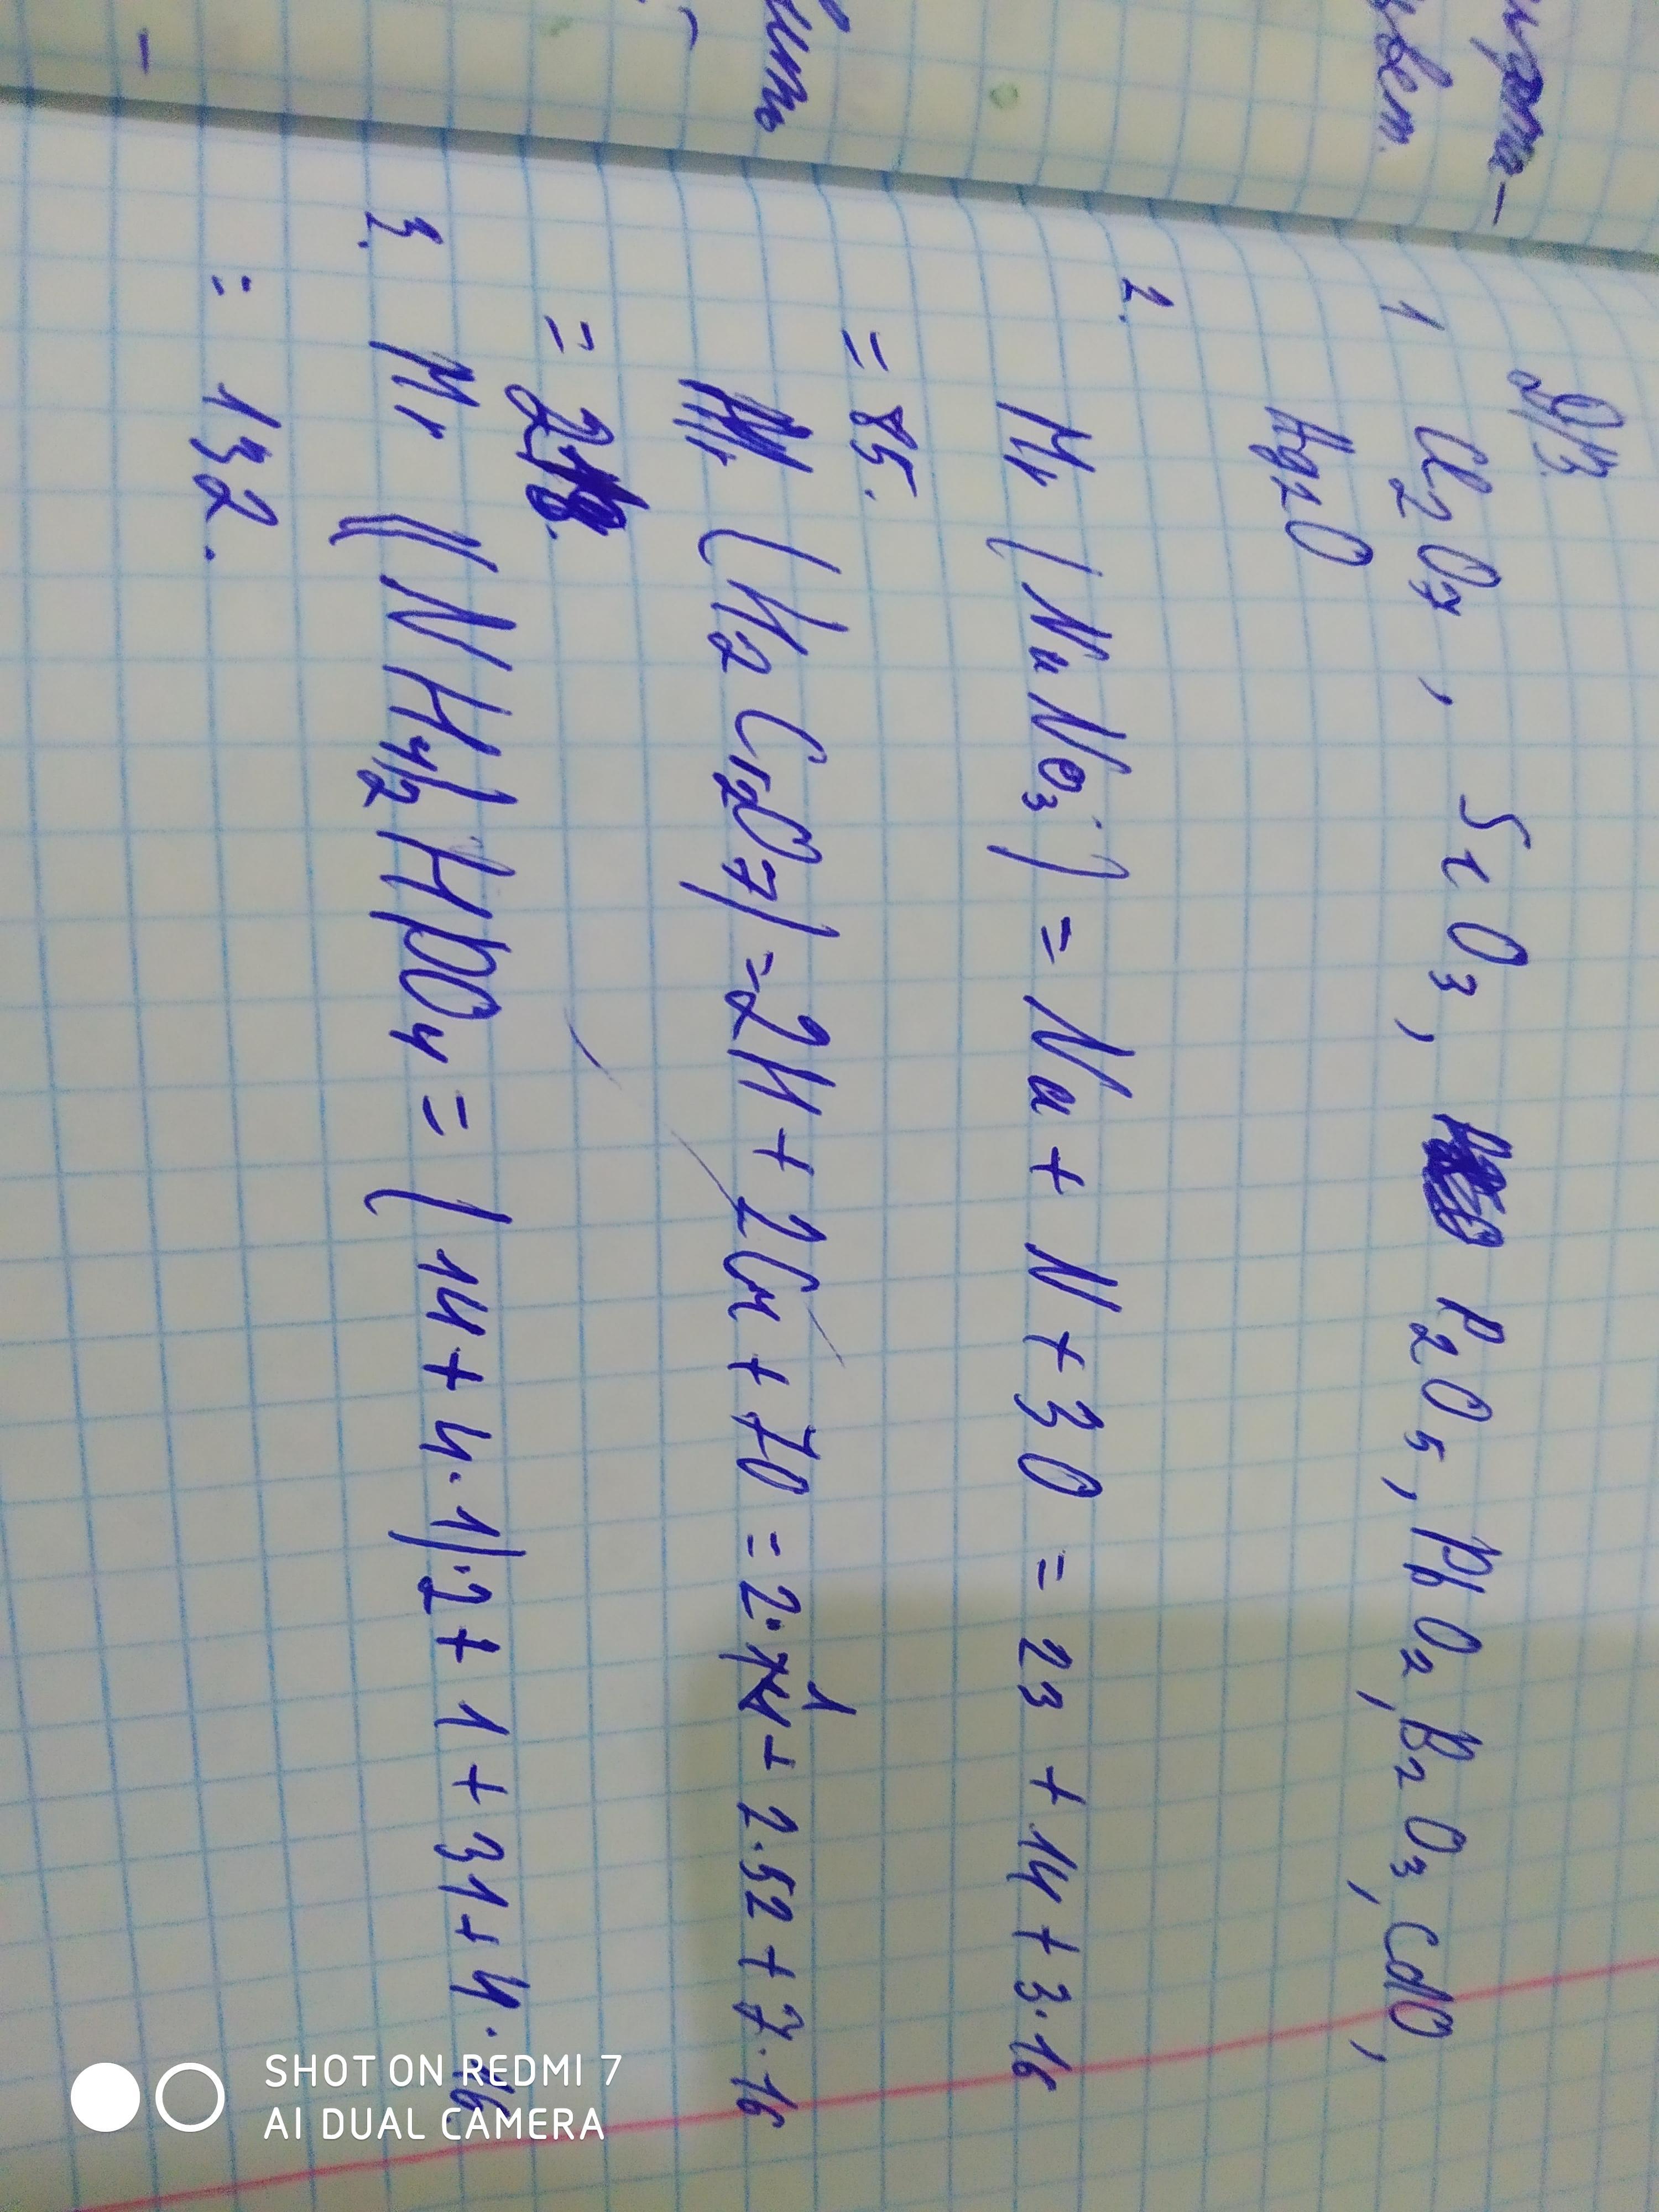 Д/З.
1 Cl₂O₇, SeO₃, P₂O₅, PbO₂, B₂O₃, CdO,
Ag₂O
2.
Mr (NaNO₃) = Na + N + 3O = 23 + 14 + 3·16
= 85.
Mr (H₂Cr₂O₇) = 2H + 2Cr + 7O = 2·1 + 2·52 + 7·16
= 218.
3. Mr ((NH₄)₂HPO₄ = (14 + 4·1)·2 + 1 + 31 + 4·16
= 132.
цвет.
SHOT ON REDMI 7
AI DUAL CAMERA